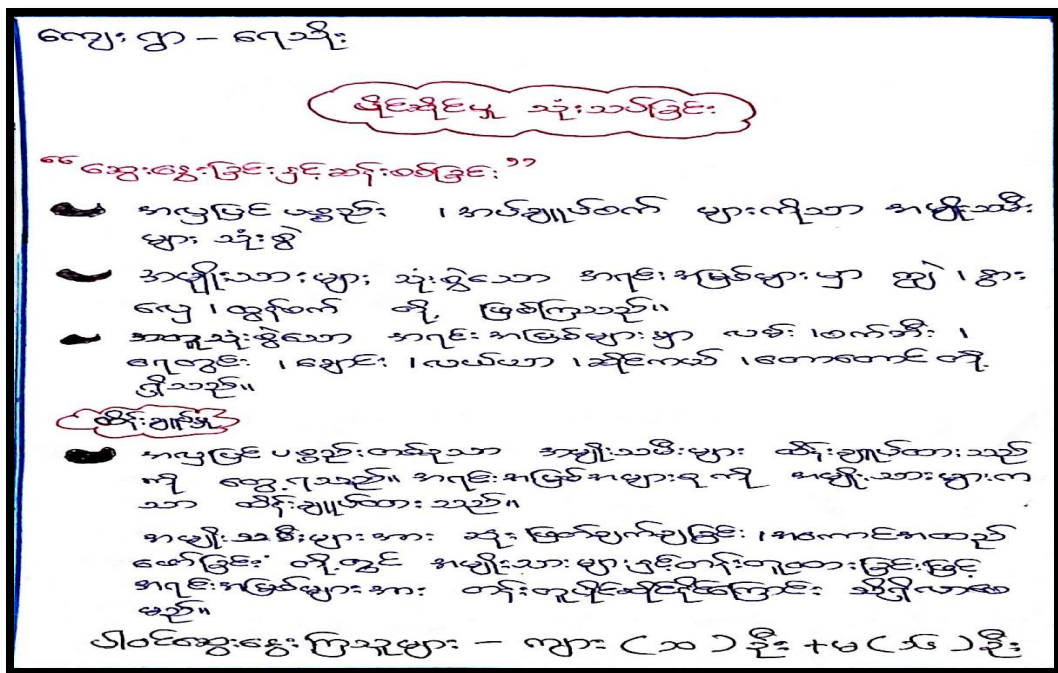 ကျေးရွာ – ရေသိုး
ပိုင်ဆိုင်မှု သုံးသပ်ခြင်း
“ဆွေးနွေးခြင်းနှင့်ဆန်းစစ်ခြင်း”
အလှပြင် ပစ္စည်း ၊ အပ်ချူပ်စက် များကိုသာ အမျိုးသမီး
များ သုံးစွဲ
အမျိုးသားများ သုံးစွဲသော အရင်းအမြစ်များမှာ ကျွဲ ၊ နွား
လှေ ၊ ထွန်စက် တို့ ဖြစ်ကြသည်။
အတူသုံးစွဲသော အရင်းအမြစ်များမှာ လမ်း ၊ စက်ဘီး ၊
ရေတွင်း ၊ ချောင်း ၊ လယ်ယာ ၊ ဆိုင်ကယ် ၊ တောတောင် တို့
ရှိသည်။
ထိန်းချုပ်မှု
အလှပြင် ပစ္စည်းတစ်ခုသာ အမျိုးသမီးများ ထိန်းချူပ်ထားသည်
ကို တွေ့ရသည်။ အရင်းအမြစ်အများစုကို အမျိုးသားများက
သာ ထိန်းချူပ်ထားသည်။
အမျိုးသမီးများအား ဆုံးဖြတ်ချက်ချခြင်း ၊ အကောင်အထည်
ဖော်ခြင်း တို့တွင် အမျိုးသားများနှင့်တန်းတူထားခြင်းဖြင့်
အရင်းအမြစ်များအား တန်းတူပိုင်ဆိုင်နိုင်ကြောင်း သိရှိလာစေ
မည်။
ပါဝင်ဆွေးနွေးကြသူများ – ကျား ( ၁၁ ) ဦး + မ ( ၁၆ ) ဦး